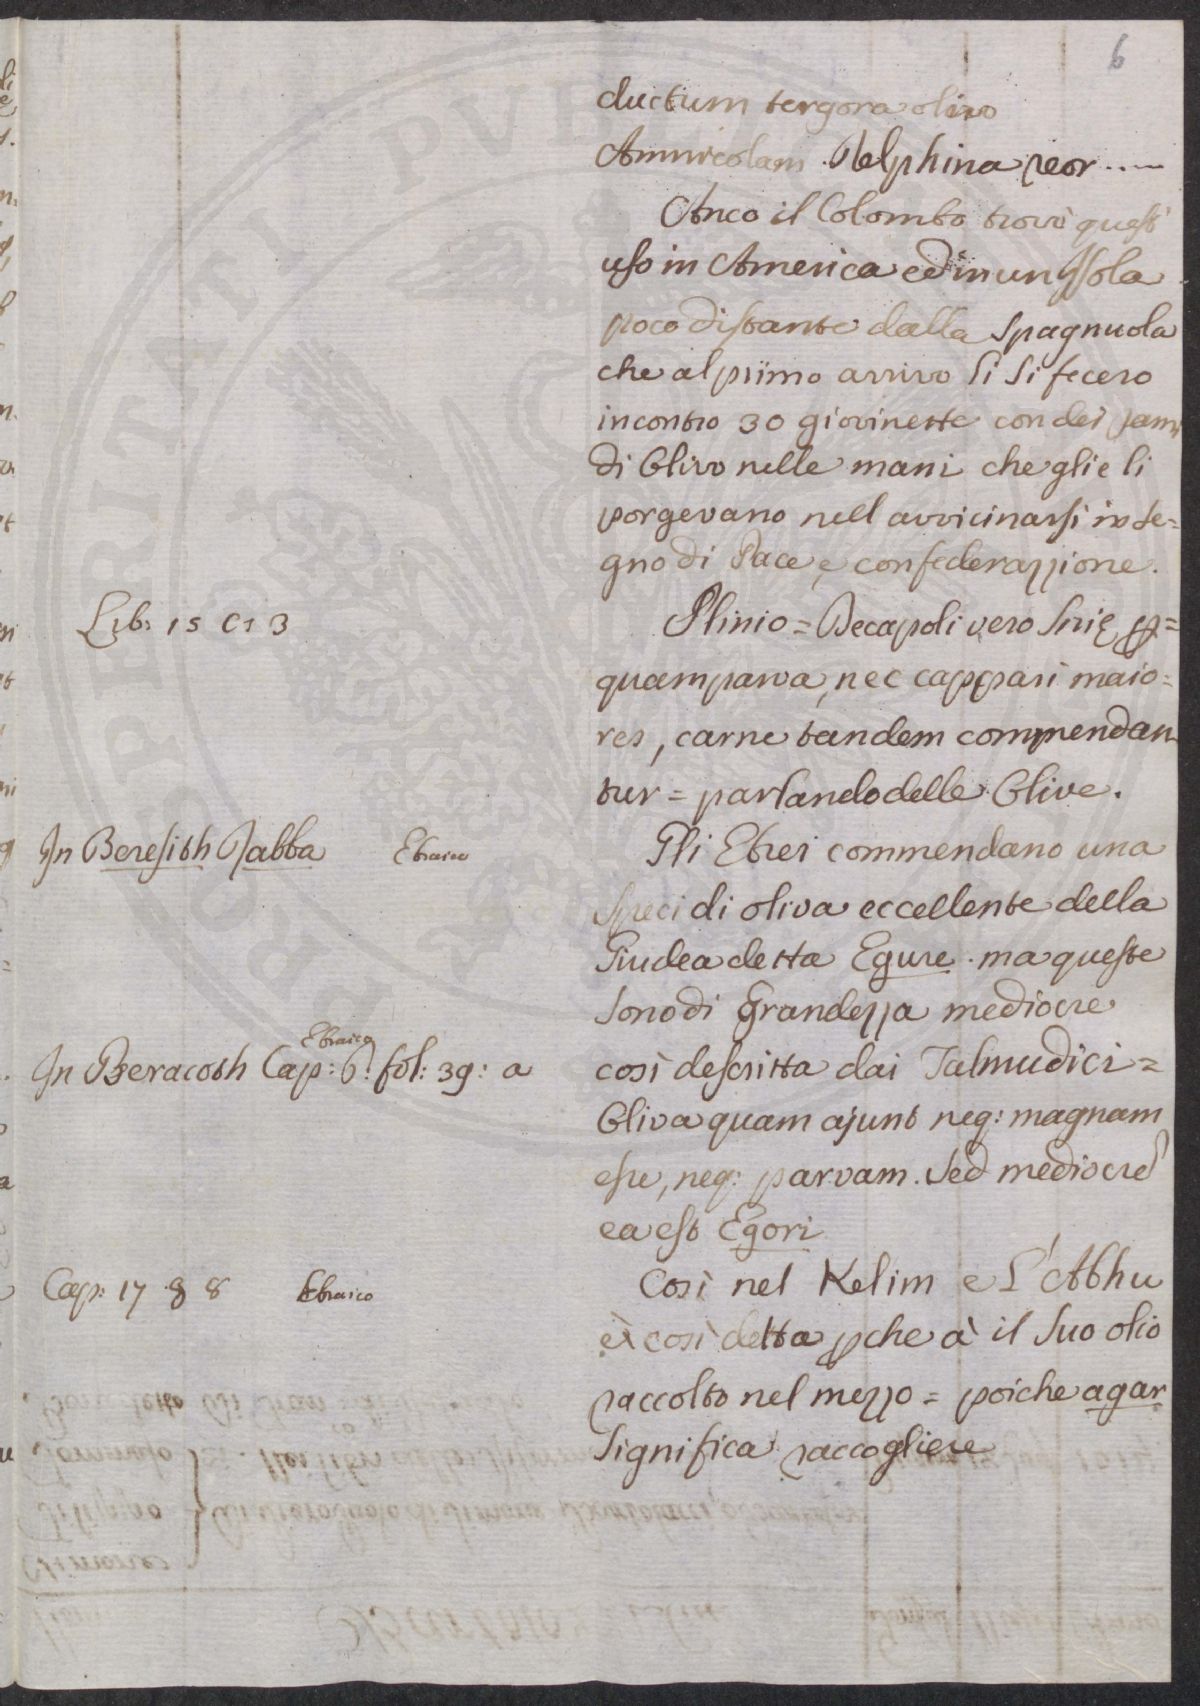 6
ductum tergora olivo
Amnicolam Delphina reor....
Anco il Colombo trovò quest'
uso in America ed in un Isola
poco distante dalla Spagnuola
che al primo arrivo li si fecero
incontro 30 giovinette con dei rami
di Olivo nelle mani che glie li
porgevano nell avvicinarsi in se=
gno di Pace, e confederazzione.
Lib: 15 C: 3
Plinio = Decapoli vero Sirię p=
quam parva, nec cappari maio=
res, carne tandem commendan
tur = parlando delle Olive.
In Beresith Rabba Ebraico
Gli Ebrei commendano una
speci di oliva eccellente della
Giudea detta Egure. ma queste
sono di Grandezza mediocre
Ebraico
In Beracoth Cap: 6: fol: 39: a
così descritta dai Talmudici =
Oliva quam ajunt neq: magnam
esse, neq: parvam. Sed mediocre
ea est Egori
Cap: 17 § 8 Ebraico
Così nel Kelim e L'Abhu
è così detta pche à il suo olio
raccolto nel mezzo = poiche agar
significa raccogliere